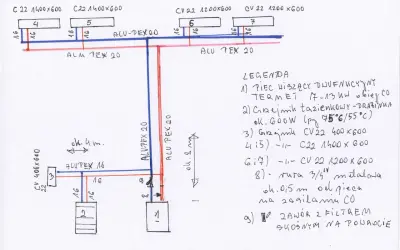 C22 1400x600
C22 1400x600
CV22 1200x600
CV22 1200x600
4
5
6
7
16
16
16
16
16
16
16
16
ALU-PEX20
ALU PEX 20
ALU PEX 20
ALUPEX 20
ALU PEX 20
ok. 2 m
ok. 4 m.
CV 22 400x600
3
ALUPEX 16
16
16
16
9
8
2
1
LEGENDA
1) PIEC WISZĄCY DWUFUNKCYJNY
TERMET 17-13 kW obieg CO
2) Grzejnik łazienkowy - DRABINKA
ok. 600W (py 75°C/55°C)
3) Grzejnik CV22 400x600
4 i 5) -||- C22 1400x600
6 i 7) -||- CV22 1200x600
8) - rura 3/4" metalowa
ok. 0,5 m od pieca
na zasilaniu CO
9) ZAWÓR Z FILTREM
SKOŚNYM NA POWROCIE